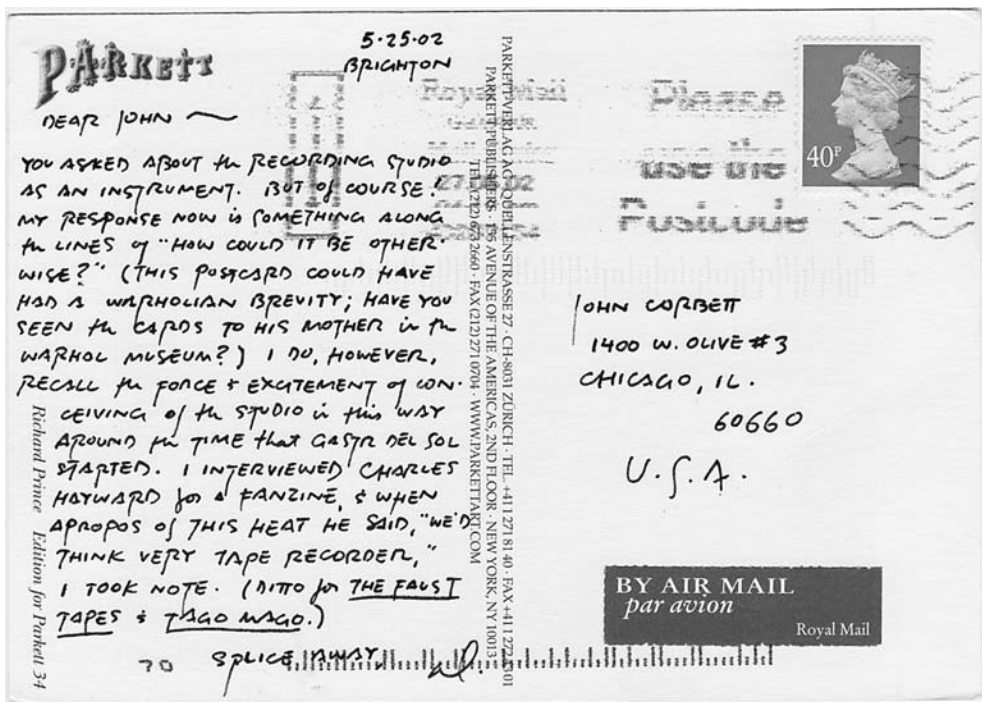 PARKETT
5·25·02
BRIGHTON
DEAR JOHN ~
YOU ASKED ABOUT the RECORDING STUDIO
AS AN INSTRUMENT. BUT of COURSE!
MY RESPONSE NOW is SOMETHING ALONG
the LINES of "HOW COULD IT BE OTHER-
WISE?" (THIS POSTCARD COULD HAVE
HAD A WARHOLIAN BREVITY; HAVE YOU
SEEN the CARDS TO HIS MOTHER in the
WARHOL MUSEUM?) I DO, HOWEVER,
RECALL the FORCE & EXCITEMENT of CON-
CEIVING of the STUDIO in this WAY
AROUND the TIME that GASTR DEL SOL
STARTED. I INTERVIEWED CHARLES
HAYWARD for A FANZINE, & WHEN
APROPOS of THIS HEAT HE SAID, "WE'D
THINK VERY TAPE RECORDER,"
I TOOK NOTE. (DITTO for THE FAUST
TAPES & TAGO MAGO.)
SPLICE AWAY,
D.
70
Richard Prince Edition for Parkett 34
PARKETT-VERLAG AG · QUELLENSTRASSE 27 · CH-8031 ZÜRICH · TEL. +41 1 271 81 40 · FAX +41 1 272 43 01
PARKETT PUBLISHERS · 155 AVENUE OF THE AMERICAS, 2ND FLOOR · NEW YORK, NY 10013
TEL (212) 673 2660 · FAX (212) 271 0704 · WWW.PARKETTART.COM
Royal Mail
02
Please
use the
Postcode
40P
JOHN CORBETT
1400 W. OLIVE #3
CHICAGO, IL.
60660
U.S.A.
BY AIR MAIL
par avion
Royal Mail